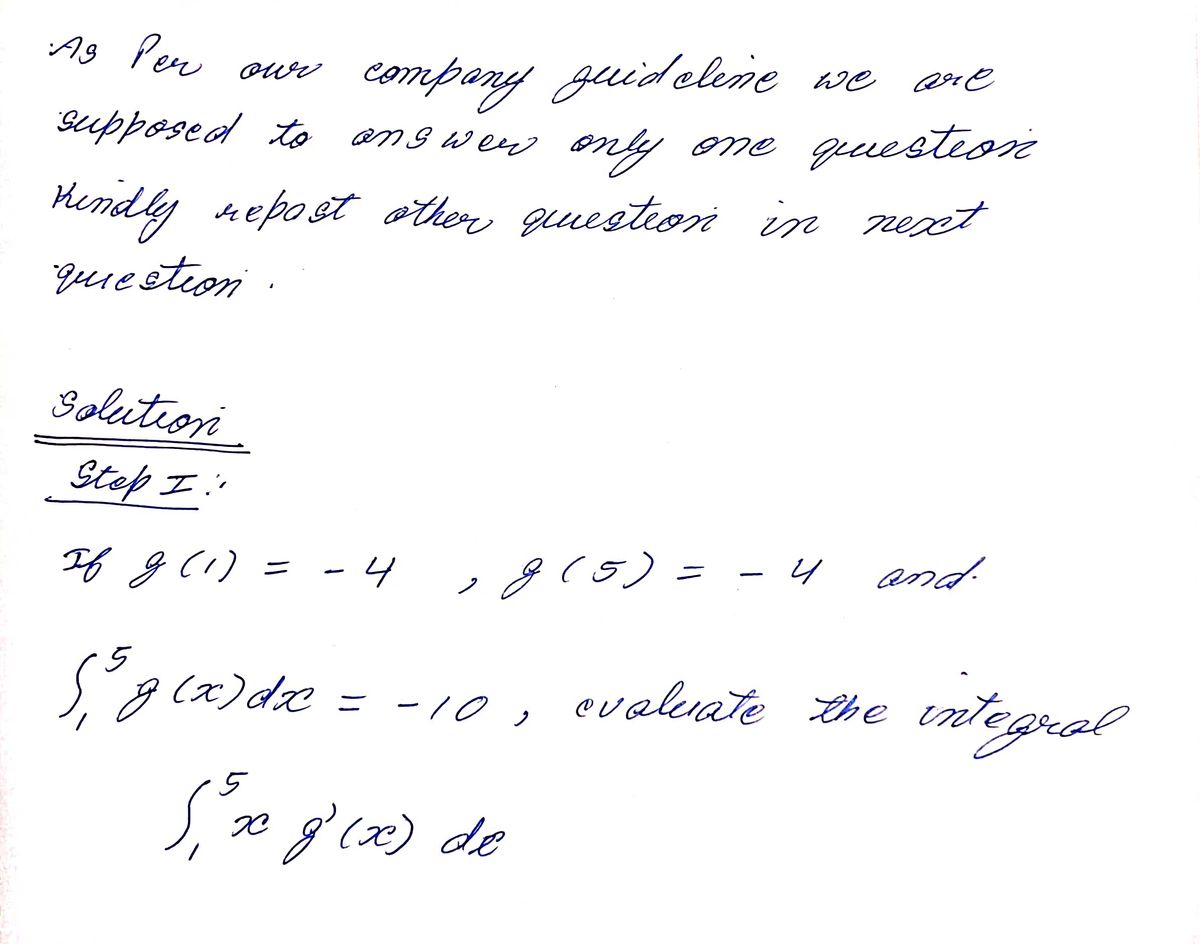 As Per our company guideline we are
supposed to answer only one question
Kindly repost other question in next
question.
Solution
Step I :
If g(1) = -4 , g(5) = -4 and
∫₁⁵ g(x)dx = -10 , evaluate the integral
∫₁⁵ x g'(x) dx